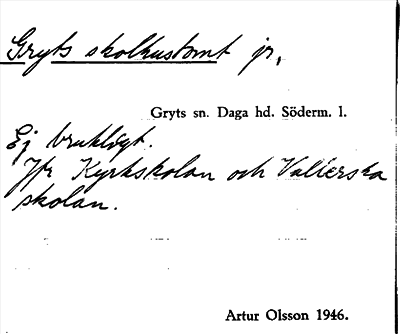 Gryts skolhustomt jr,
Gryts sn. Daga hd. Söderm. l.
Ej brukligt.
Jfr Kyrkskolan och Vallerska
skolan.
Artur Olsson 1946.